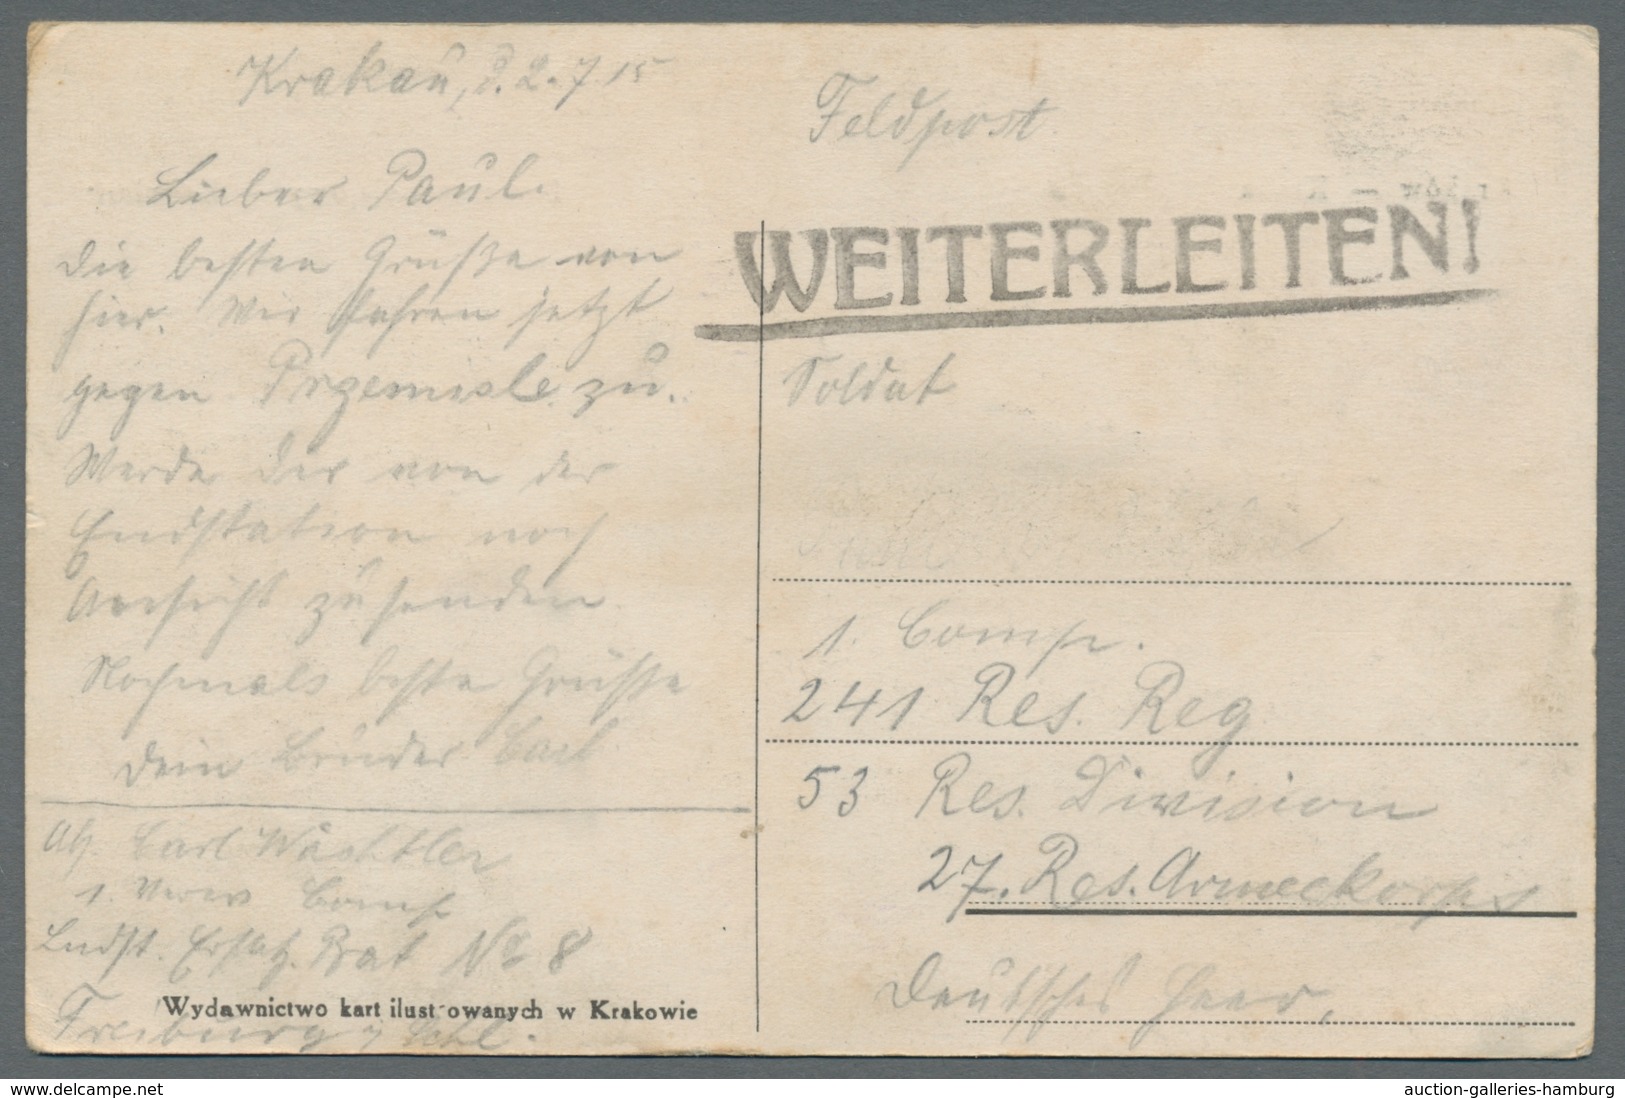 Krakau, d. 2.7.15
Lieber Paul.
die besten Grüße von
hier. Wir fahren jetzt
gegen Przemisle zu.
Werde dir von der
Endstation noch
Ansicht zusenden
Nochmals beste Grüße
dein Bruder Carl
Abs. Carl Wächtler
1. Comp
Lndst. Ersatz. Bat No 8
Freiburg i Schl.
Wydawnictwo kart ilustrowanych w Krakowie
Feldpost
WEITERLEITEN!
Soldat
1. Comp.
241 Res. Reg
53 Res. Division
27. Res. Armeekorps
Deutsches Heer,
auction-galleries-hamburg
www.delcampe.net